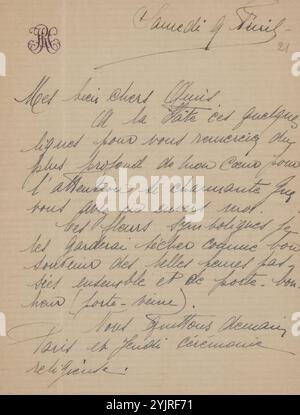 Samedi 9 Avril
21
Mes bien chers Amis
A la hâte ces quelques
lignes pour vous remercier du
plus profond de mon Cœur pour
l'attention si charmante que
vous avez eu envers moi.
Ces fleurs symboliques je
les garderai sécher comme bon
souvenir des belles heures pas-
sées ensemble et de porte-bon-
heur (porte-veine).
Nous quittons demain
Paris et Jeudi cérémonie
religieuse.
alamy
Image ID: 2YJRF71
www.alamy.com